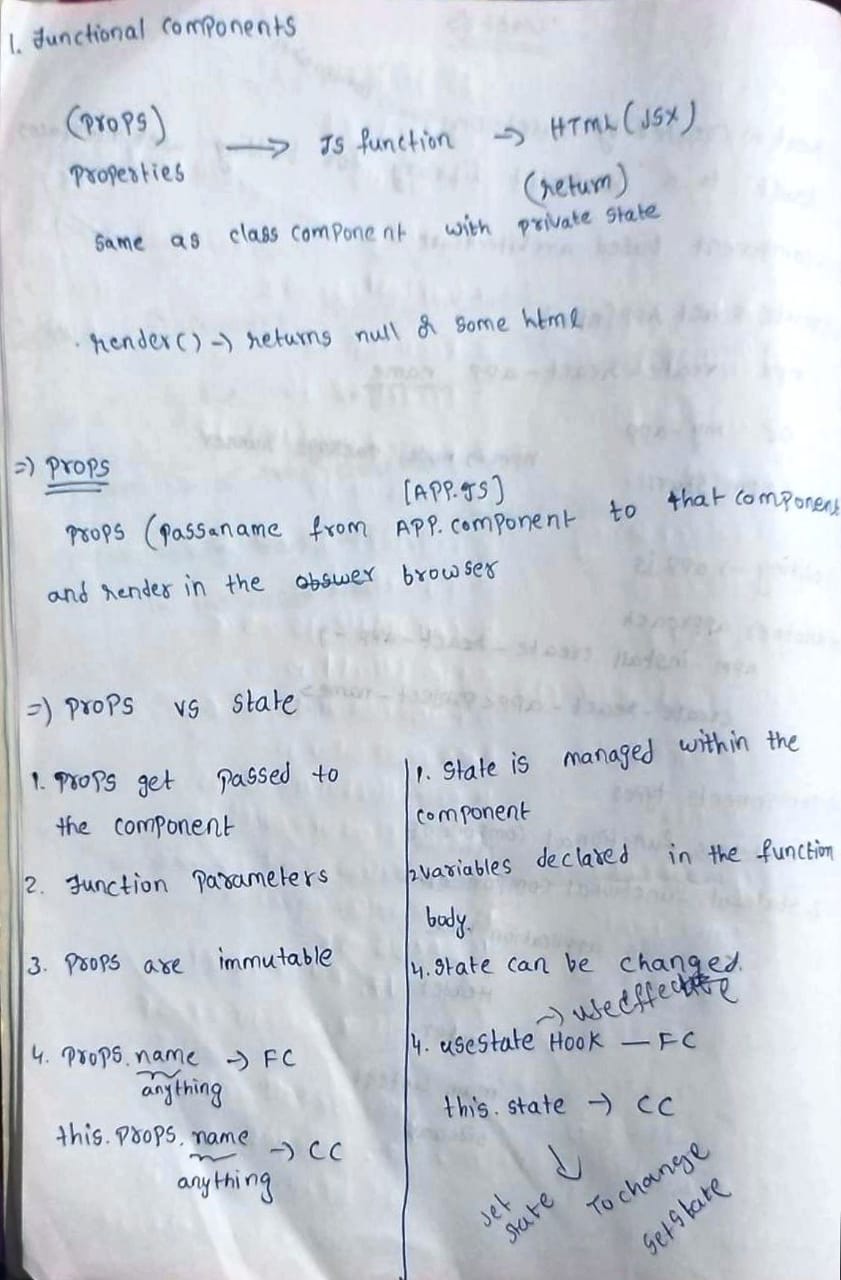 1. Functional components
(props) → JS function → HTML (JSX)
properties (return)
same as class component with private state
. render() → returns null & some html
=) props
[APP.JS]
props (passaname from APP. component to that component
and render in the browser
=) props vs state
1. props get passed to
the component
2. Function parameters
3. props are immutable
4. props. name → FC
anything
this. props. name → CC
anything
1. state is managed within the
component
2 variables declared in the function
body.
4. state can be changed.
→
4. useState Hook — FC
this. state → CC
↓
set
state
To change
setstate